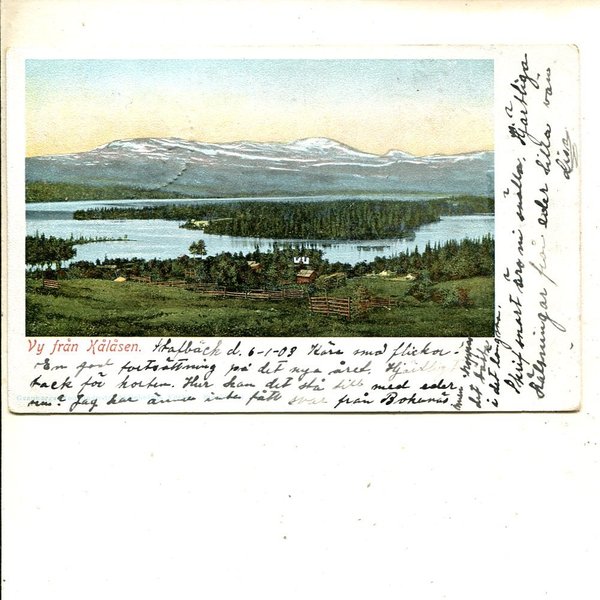 Vy från Kålåsen.
Stafbäck d. 6-1-03 Kära små flickor!
En god fortsättning på det nya året. Hjärtligt
tack för korten. Hur kan det stå till med eder
nu? Jag har ännu inte fått svar från Bohenäs
men hoppas
det
i det längsta.
Skrif snart äro ni snälla. Hjärtliga
Hälsningar från eder lilla vän
Lisa